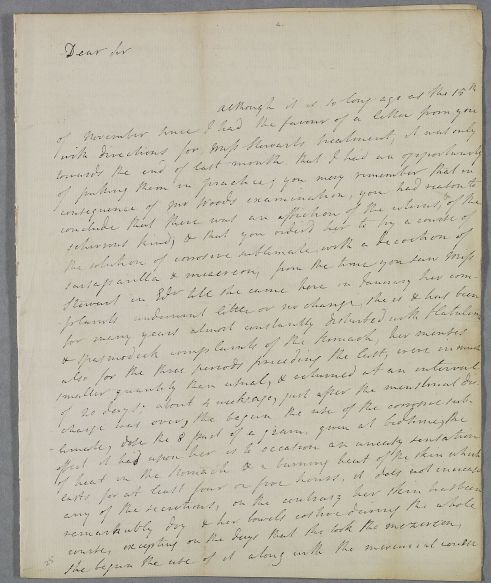 Dear Sir
Although it is so long ago as the 15th
of November since I had the favour of a letter from you
with directions for Miss Stewarts treatment, it was only
towards the end of last month that I had an opportunity
of putting them in practice; you may remember that in
consequence of Mr Woods examination, you had reason to
conclude that there was an affection of the uterus, of the
schirrous kind, & that you order'd her to try a course of
the solution of corrosive sublimate, with a decoction of
sarsaparilla & mezereon; from the time you saw Miss
Stewart in Edr till she came here in January her com-
plaints underwent little or no change, she is & has been
for many years almost constantly disturbed with flatulent
& spasmodick complaints of the stomach, her menses
also for the three periods preceding the last, were in much
smaller quantity than usual, & returned at an interval
of 20 days; about 4 weeks ago, just after the menstrual dis-
charge was over, she begun the use of the corrosive sub-
-limate, dose the 8 part of a grain, given at bedtime, the
effect it had upon her is to occasion an uneasy sensation
of heat in the stomach & a burning heat of the skin which
lasts for at least four or five hours, it does not increase
any of the secretions, on the contrary her skin has been
remarkably dry & her bowels costive during the whole
course, excepting on the days that she took the mezereon,
she begun the use of it along with the mercurial course